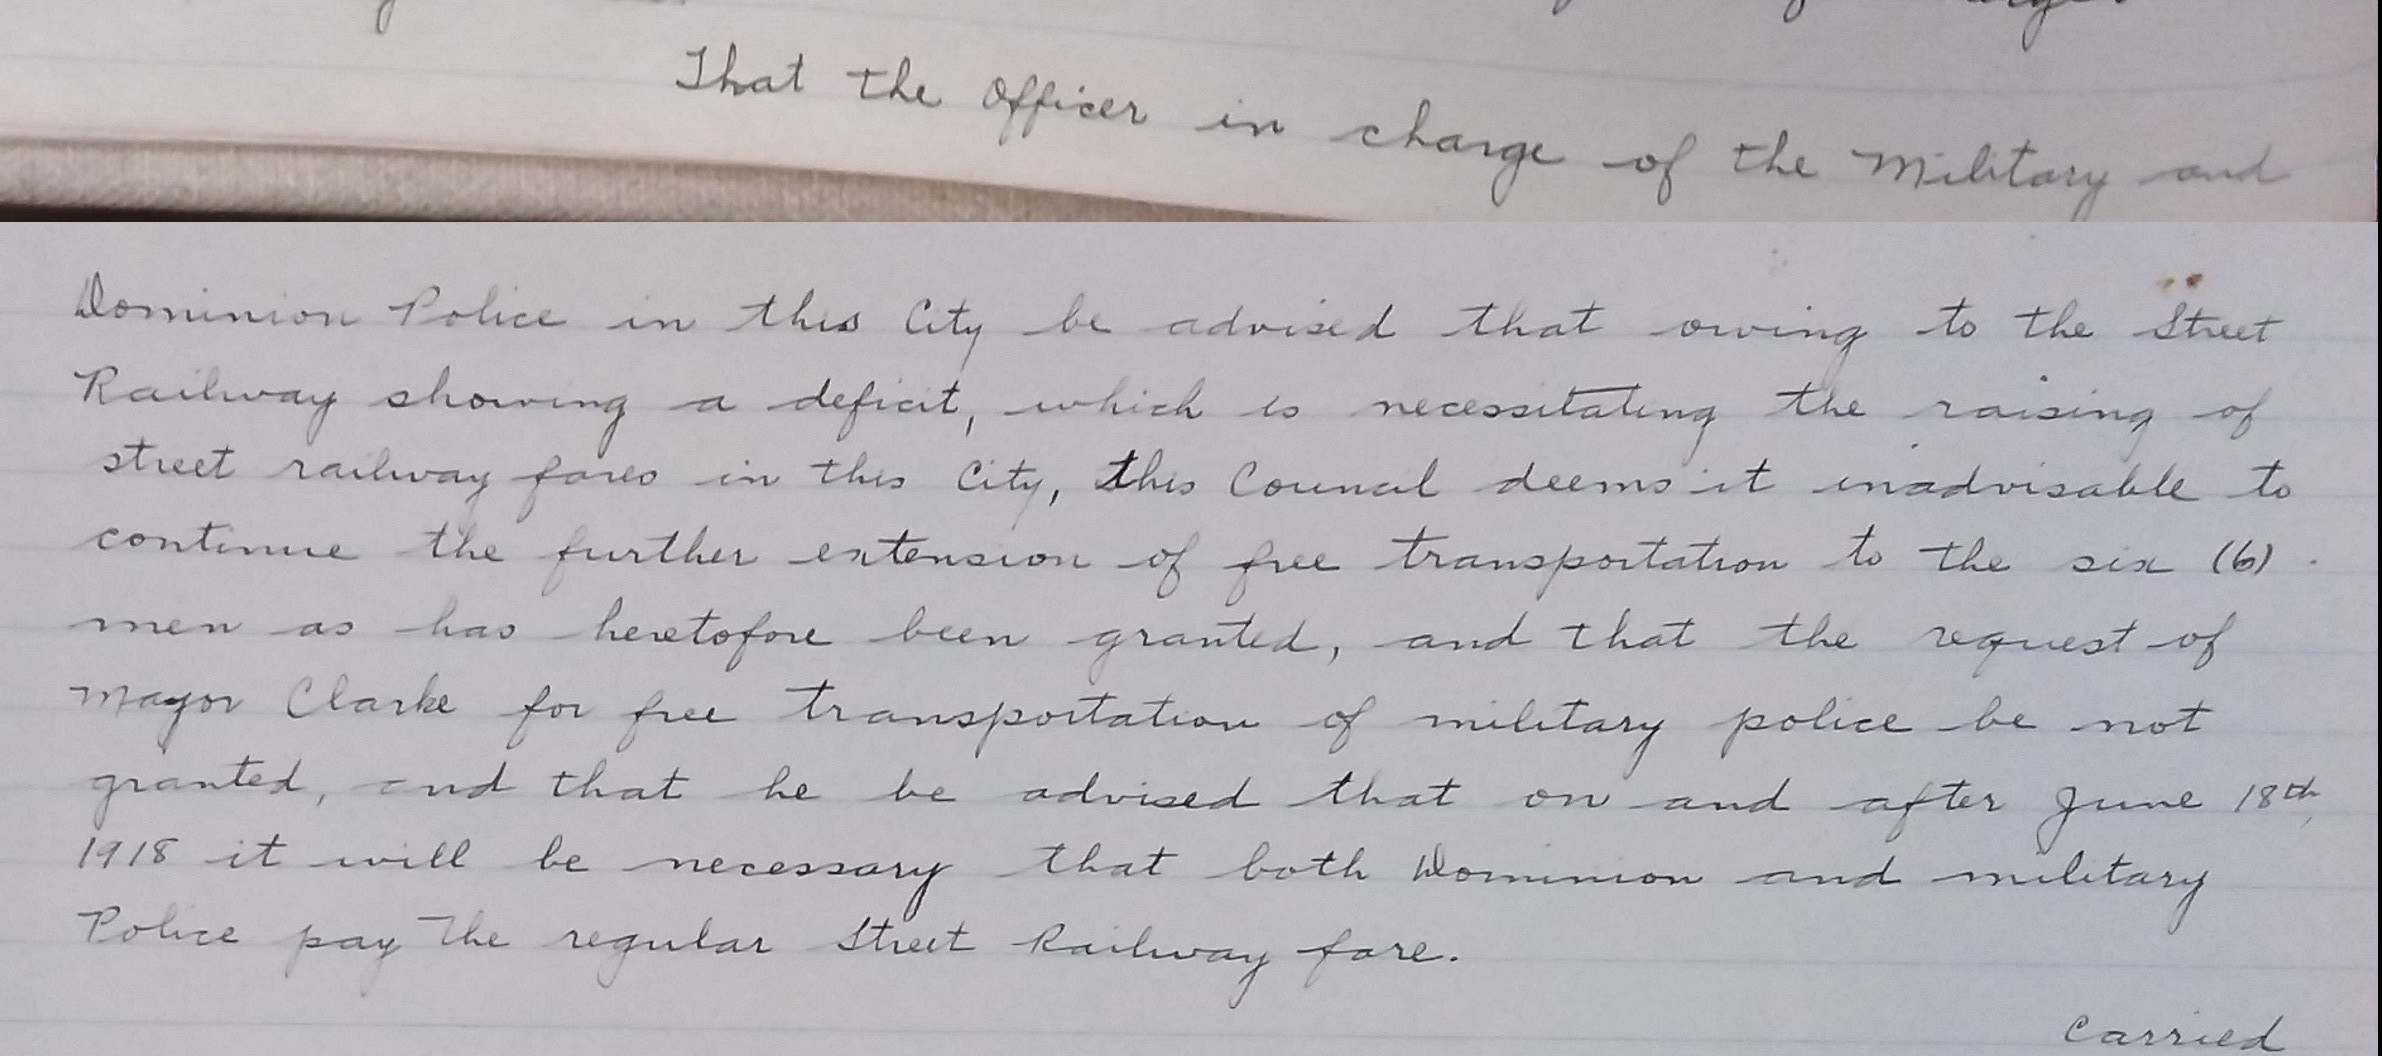 That the Officer in charge of the Military and
Dominion Police in this City be advised that owing to the Street
Railway showing a deficit, which is necessitating the raising of
street railway fares in this City, this Council deems it inadvisable to
continue the further extension of free transportation to the six (6)
men as has heretofore been granted, and that the request of
Mayor Clarke for free transportation of military police be not
granted, and that he be advised that on and after June 18th,
1918 it will be necessary that both Dominion and military
Police pay the regular Street Railway fare.
Carried